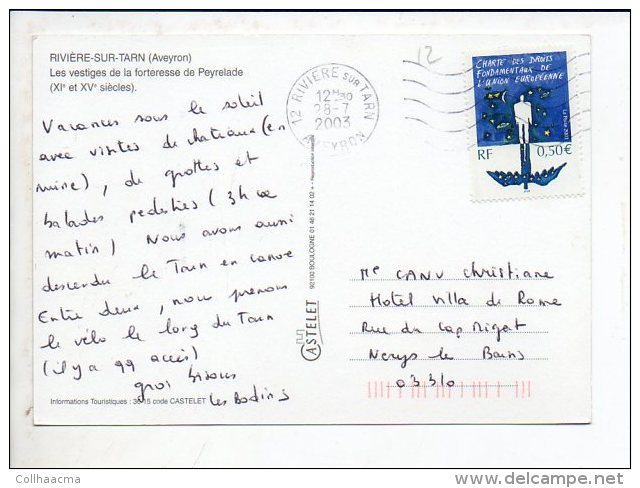 RIVIÈRE-SUR-TARN (Aveyron)
Les vestiges de la forteresse de Peyrelade
(XIe et XVe siècles).
Vacances sous le soleil
avec visites de chateaux (en
ruine), de grottes et
balades pedestres (3h ce
matin) Nous avons aussi
descendu le Tarn en canoe
Entre deux, nous prenons
le vélo le long du Tarn
(il y a 99 accès)
gros bisous
les Bodins
Informations Touristiques : 3615 code CASTELET
92100 BOULOGNE 01 46 21 14 02
CASTELET
12
12 RIVIERE SUR TARN
12H30
28-7
2003
AVEYRON
CHARTE DES DROITS
FONDAMENTAUX DE
L'UNION EUROPÉENNE
RF 0,50€
La Poste 2003
Me CANU Christiane
Hotel Villa de Rome
Rue du Cap Migat
Nerys le Bains
03310
Collhaacma
www.delcampe.net